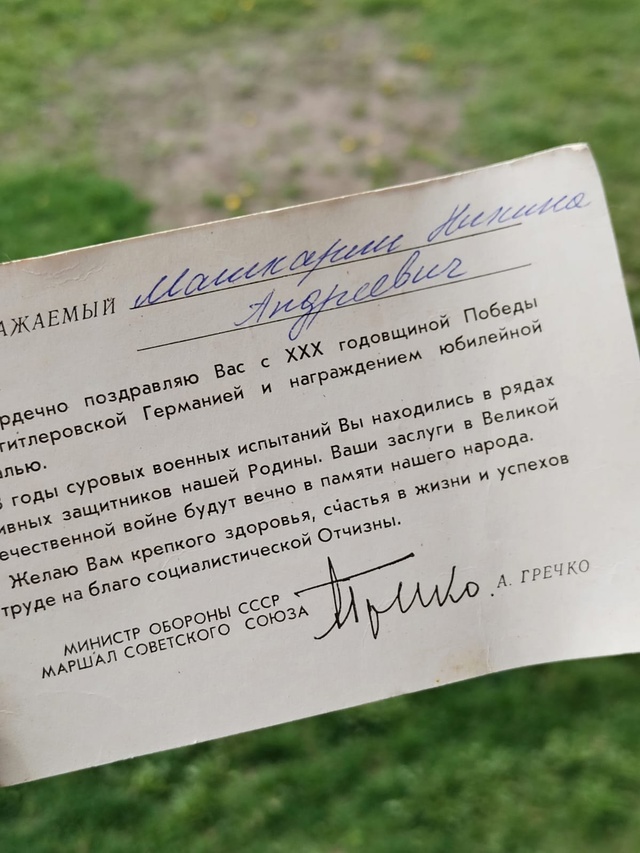 АЖАЕМЫЙ Машкарин
Андреевич
рдечно поздравляю Вас с XXX годовщиной Победы
гитлеровской Германией и награждением юбилейной
алью.
В годы суровых военных испытаний Вы находились в рядах
ивных защитников нашей Родины. Ваши заслуги в Великой
ечественной войне будут вечно в памяти нашего народа.
Желаю Вам крепкого здоровья, счастья в жизни и успехов
труде на благо социалистической Отчизны.
МИНИСТР ОБОРОНЫ СССР
МАРШАЛ СОВЕТСКОГО СОЮЗА Гречко А. ГРЕЧКО